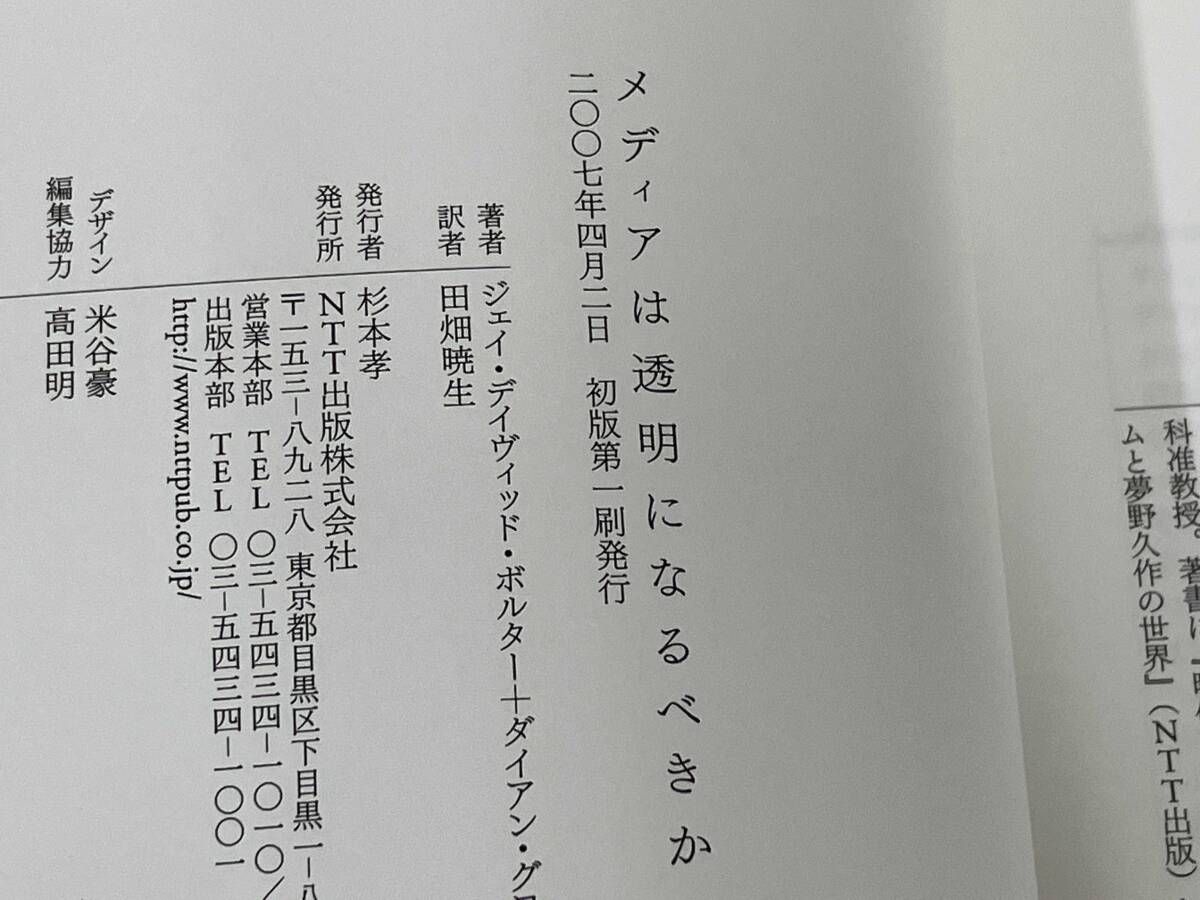 科准教授。著書に『
ムと夢野久作の世界』（NTT出版）
メディアは透明になるべきか
二〇〇七年四月二日 初版第一刷発行
著者 ジェイ・デイヴィッド・ボルター＋ダイアン・グロ
訳者 田畑暁生
発行者 杉本孝
発行所 NTT出版株式会社
〒一五三－八九二八 東京都目黒区下目黒一－八
営業本部 TEL 〇三－五四三四－一〇一〇／
出版本部 TEL 〇三－五四三四－一〇〇一
http://www.nttpub.co.jp/
デザイン 米谷豪
編集協力 髙田明